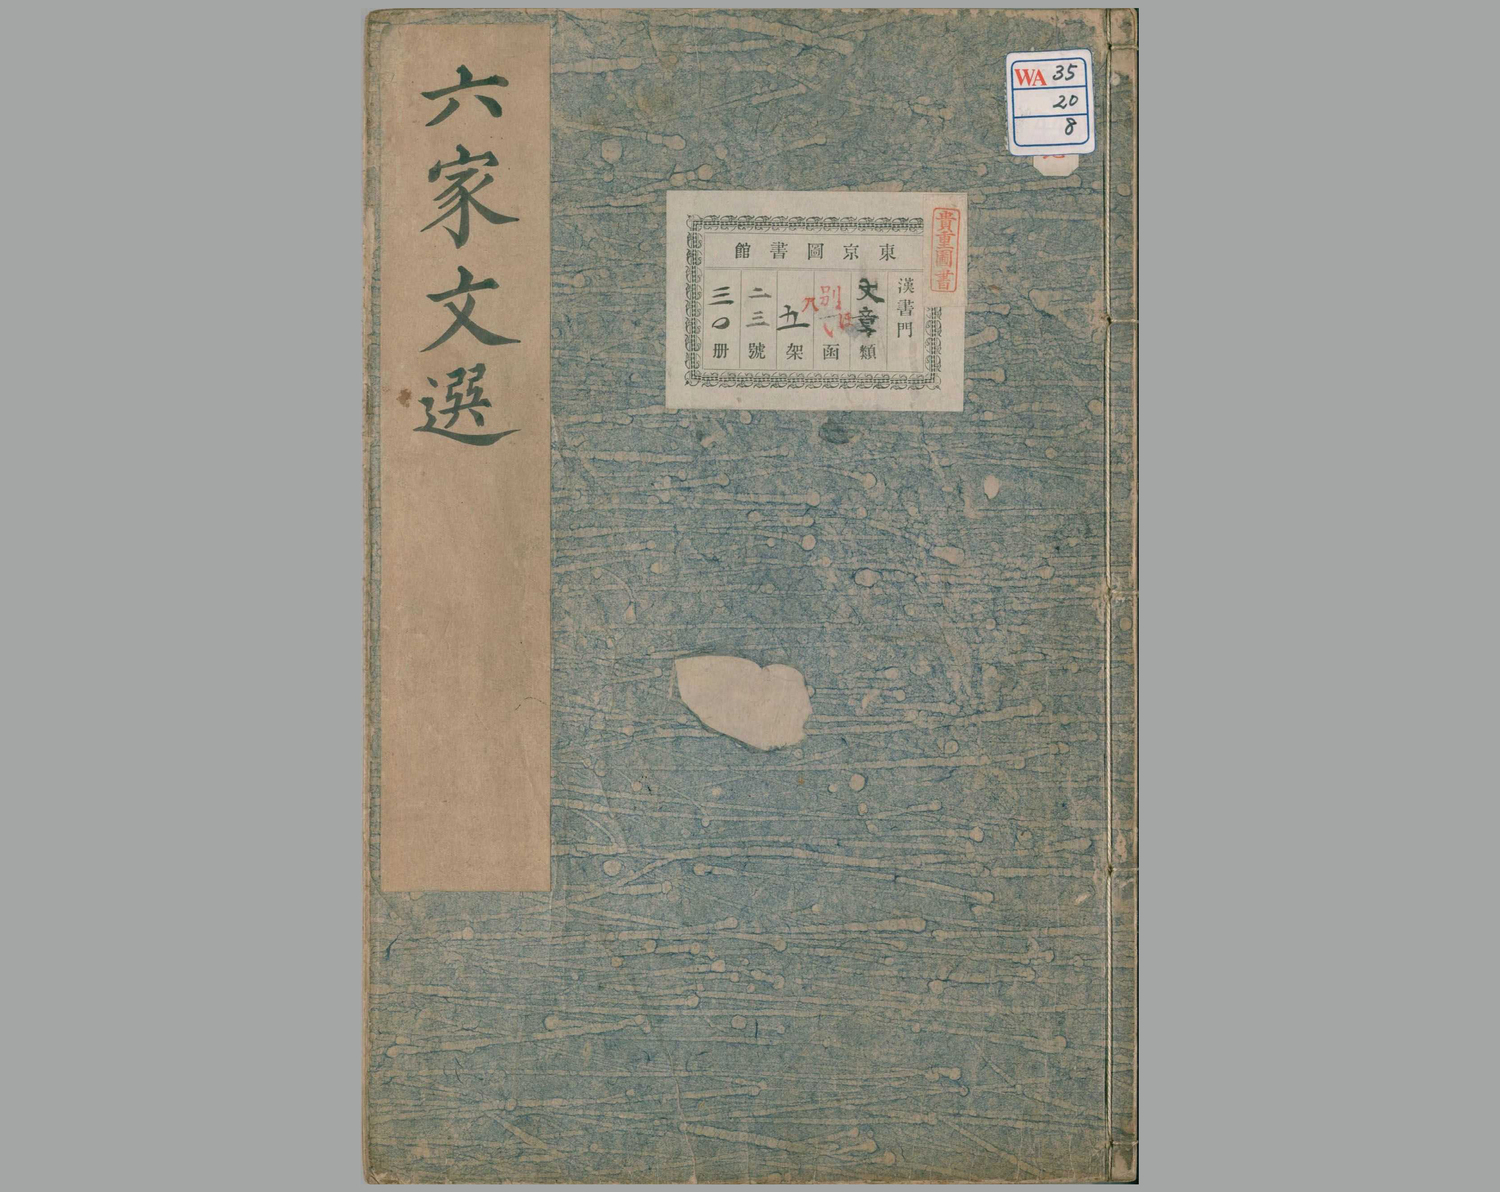 六家文選
WA 35
20
8
貴重圖書
東京圖書館
漢書門
文章類
別
函
五架
二三號
三〇册